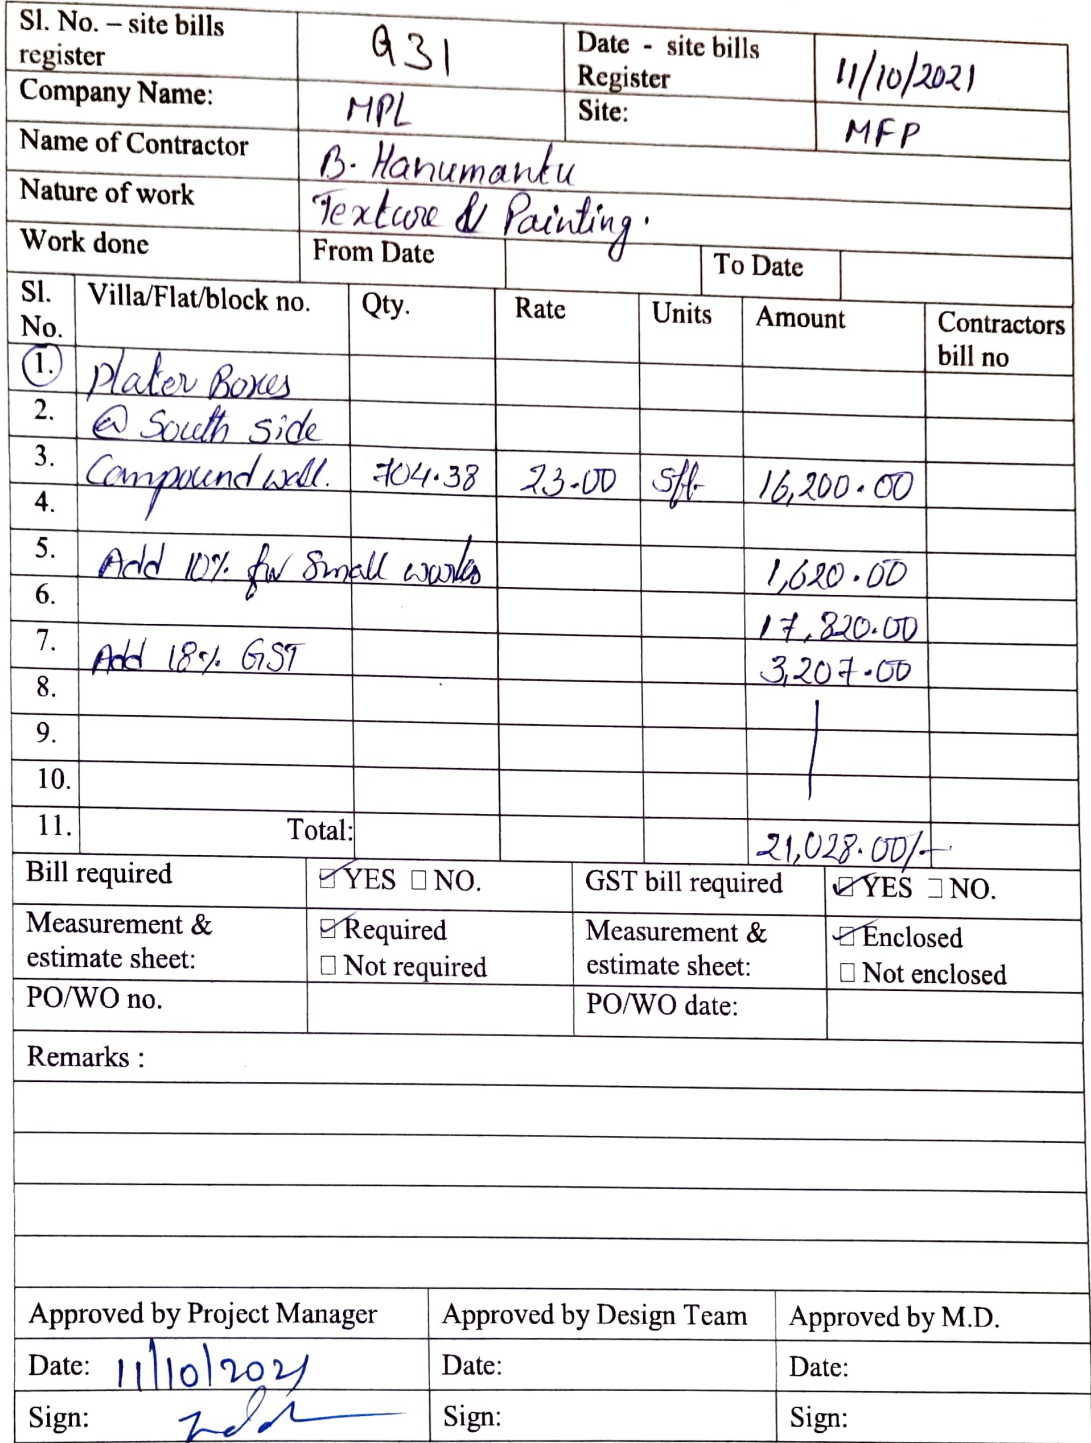 Sl. No. – site bills register 931 Date - site bills Register 11/10/2021
Company Name: MPL Site: MFP
Name of Contractor B. Hanumantu
Nature of work Texture & Painting.
Work done From Date To Date
Sl. No. Villa/Flat/block no. Qty. Rate Units Amount Contractors bill no
1. Plater Boxes
2. @ South side
3. Compound wall. 704.38 23.00 sft. 16,200.00
4.
5. Add 10% for Small works 1,620.00
6. 17,820.00
7. Add 18% GST 3,207.00
8.
9.
10.
11. Total: 21,028.00/-
Bill required ☑ YES ☐ NO. GST bill required ☑ YES ☐ NO.
Measurement & estimate sheet: ☑ Required ☐ Not required Measurement & estimate sheet: ☑ Enclosed ☐ Not enclosed
PO/WO no. PO/WO date:
Remarks :
Approved by Project Manager Approved by Design Team Approved by M.D.
Date: 11/10/2021 Date: Date:
Sign: Sign: Sign: